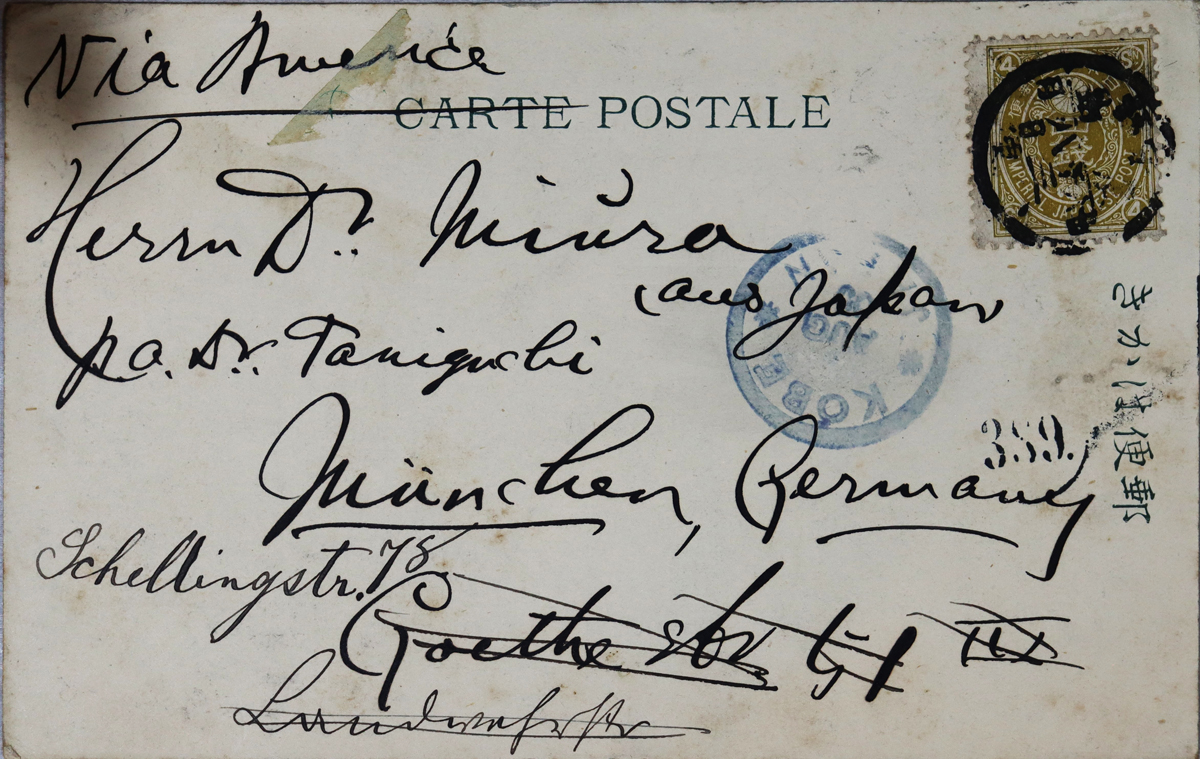 Via America
CARTE POSTALE
4 Sn
IMPERIAL JAPANESE POST
Herrn Dr. Miūra
(aus Japan
p.a. Dr. Taniguchi
KOBE
JAPAN
AUG
きかは便郵
389.
München, Germany
Schellingstr. 78
Goethe str. III
Landwehrstr